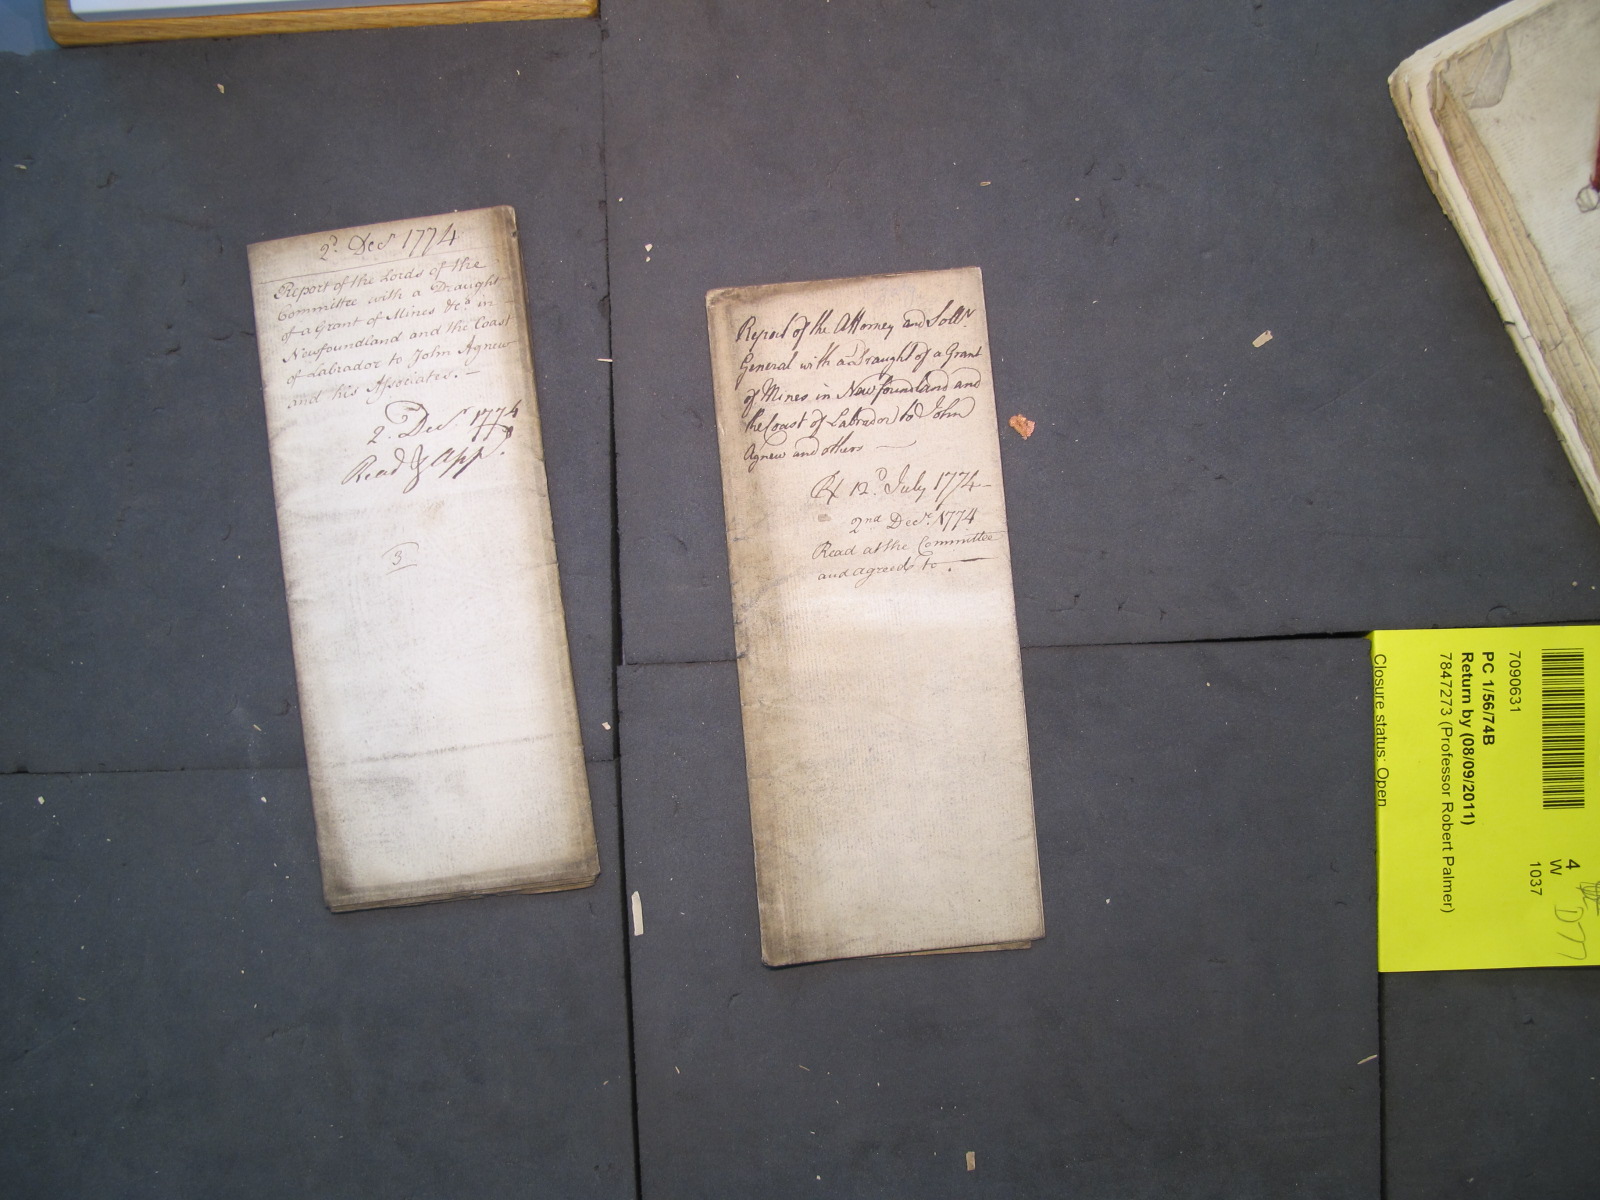 2d. Decr 1774
Report of the Lords of the
Committee with a Draught
of a Grant of Mines &ca. in
Newfoundland and the Coast
of Labrador to John Agnew
and his Associates. —
2d. Decr. 1774
Read & App.
3
Report of the Attorney and Sollr.
General with a Draught of a Grant
of Mines in Newfoundland and
the Coast of Labrador to John
Agnew and others —
Rx 12th July 1774
2nd Decr. 1774
Read at the Committee
and agreed to. —
7090631
PC 1/56/74B
Return by (08/09/2011)
7847273 (Professor Robert Palmer)
Closure status: Open
4
W
1037
D77